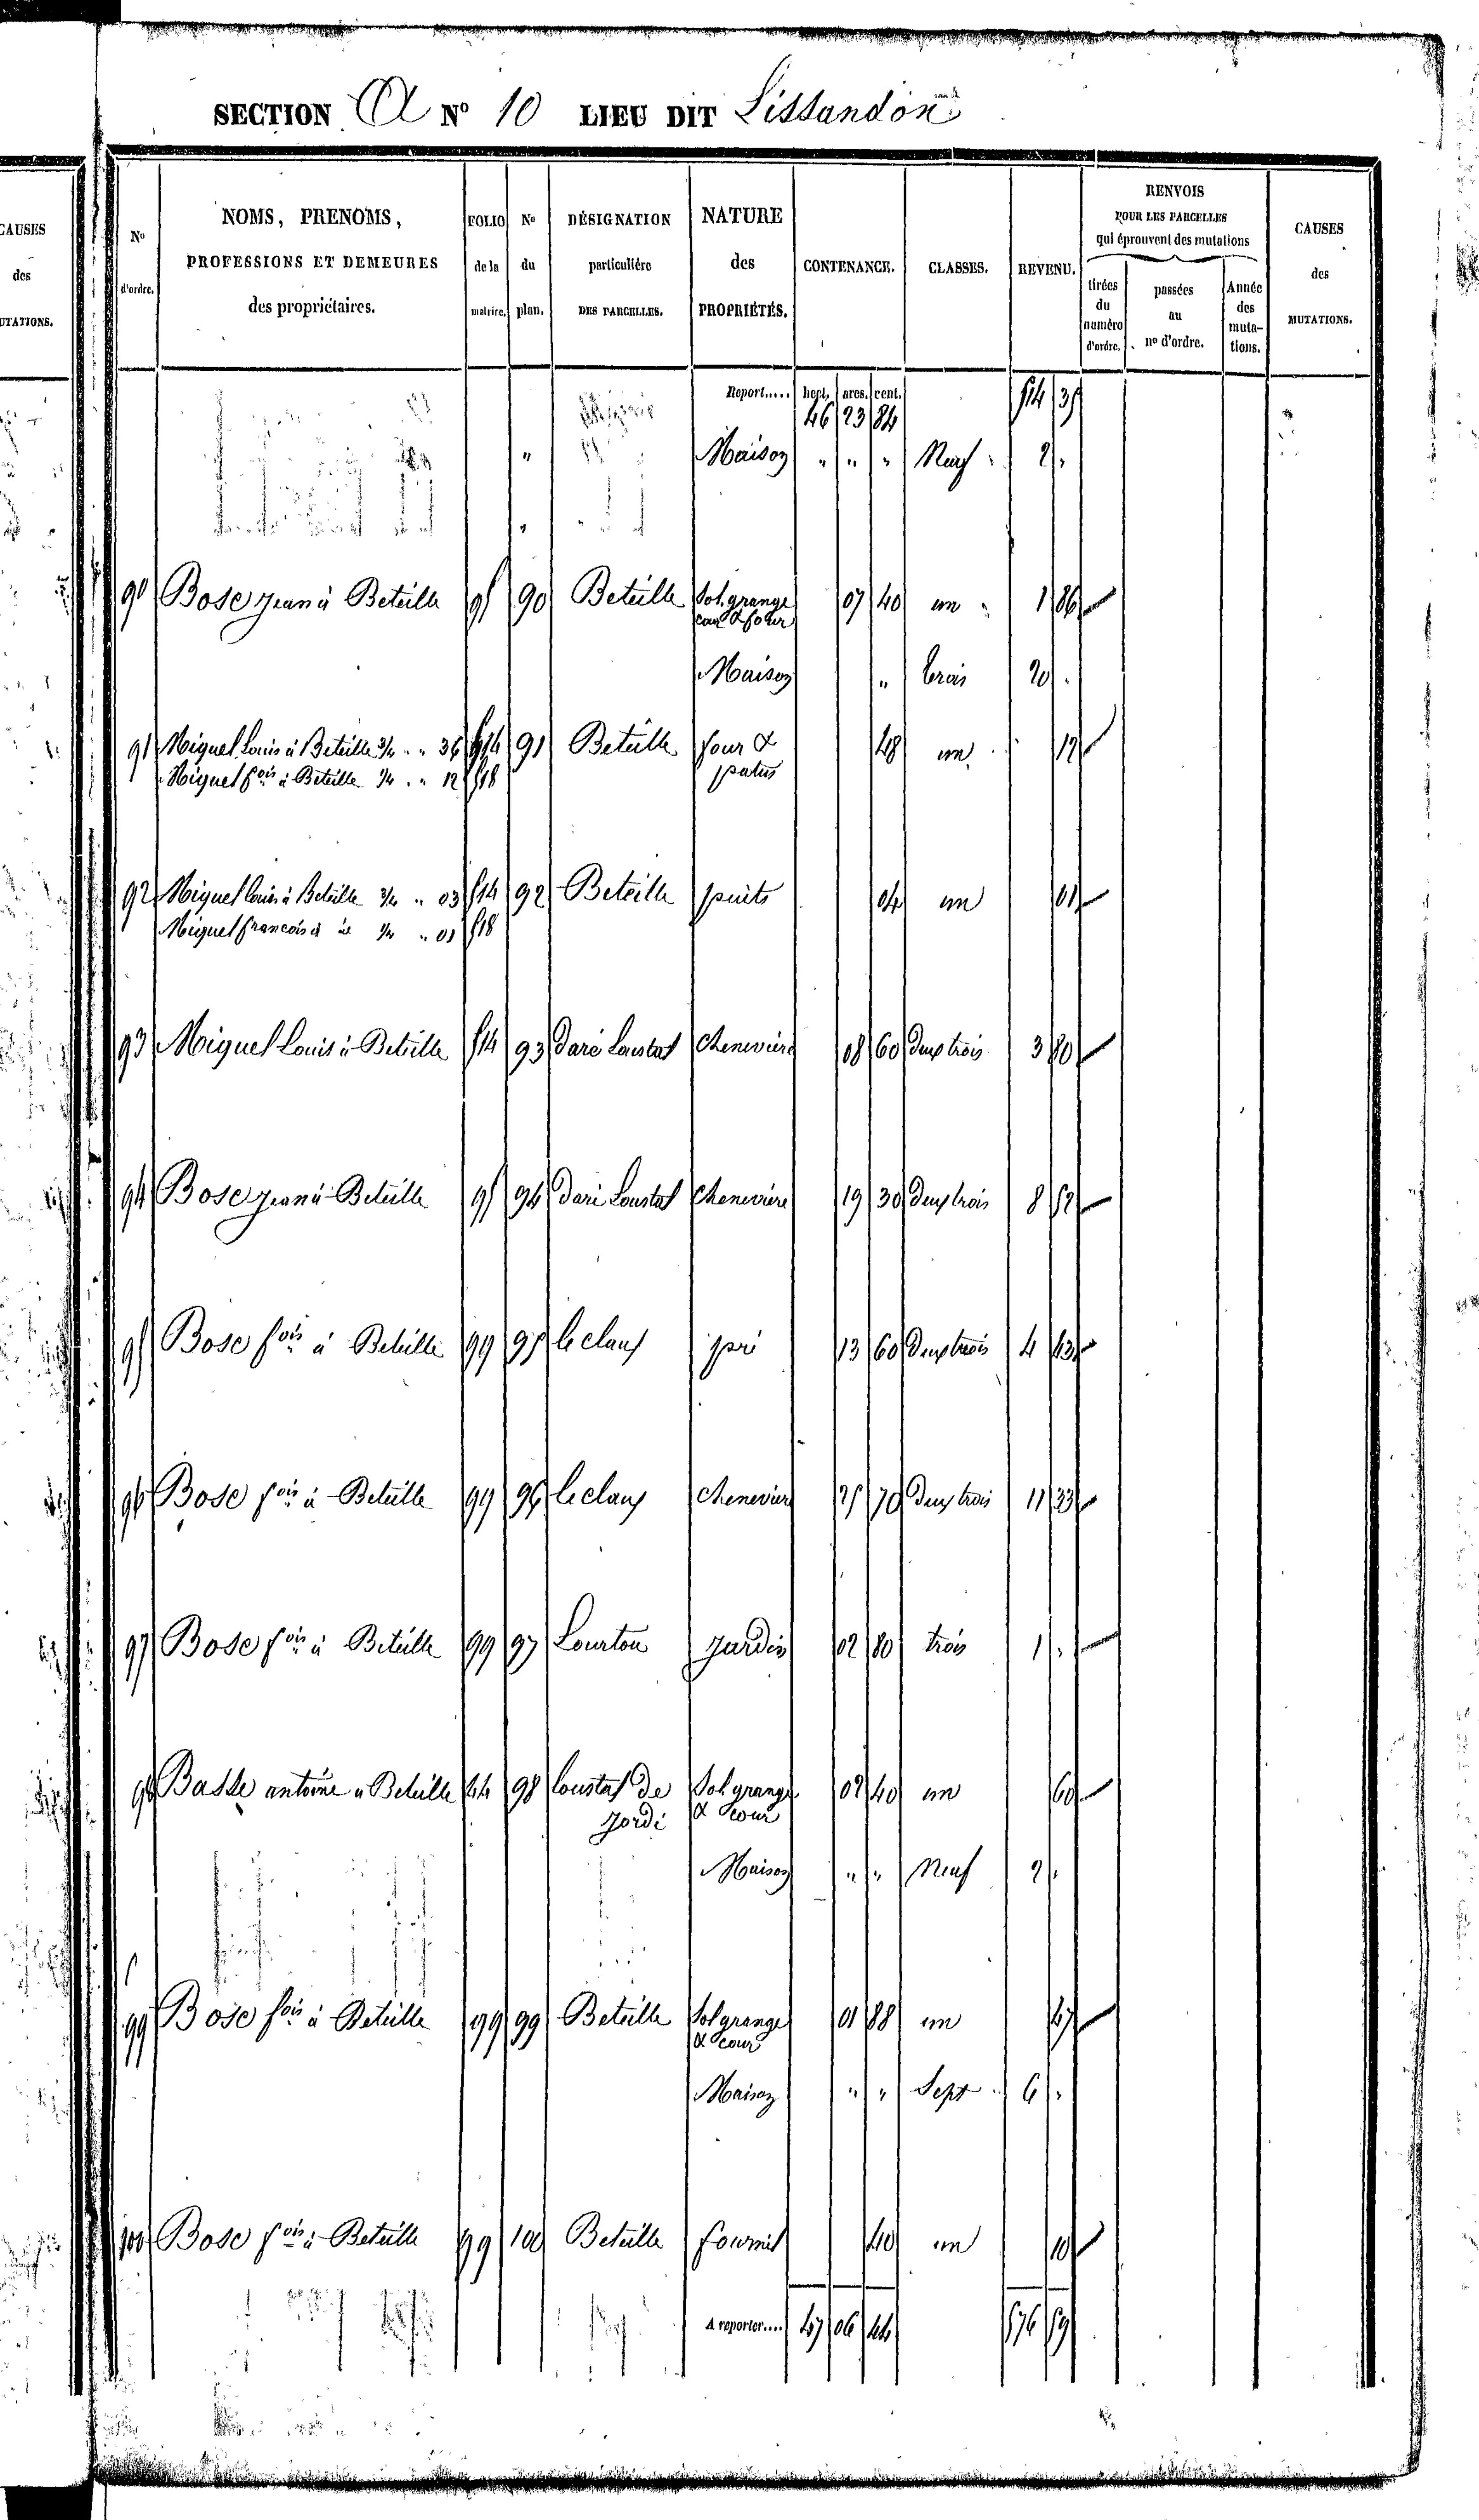 SECTION A N° 10 LIEU DIT Lissandon
CAUSES
des
MUTATIONS.
N°
d'ordre.
NOMS, PRENOMS,
PROFESSIONS ET DEMEURES
des propriétaires.
FOLIO
de la
matrice.
N°
du
plan.
DÉSIGNATION
particulière
DES PARCELLES.
NATURE
des
PROPRIÉTÉS.
CONTENANCE.
CLASSES.
REVENU.
RENVOIS
POUR LES PARCELLES
qui éprouvent des mutations
tirées
du
numéro
d'ordre.
passées
au
n° d'ordre.
Année
des
muta-
tions.
CAUSES
des
MUTATIONS.
Report..... hect. ares. cent.
46 23 84 514 35
" Maison " " " Neuf 2 "
90 Bose Jean à Beteille 95 90 Beteille Sol, grange 07 40 un 1 86
cour & four
Maison " trois 20 .
91 Miquel Louis à Beteille 3/4 . " 36 514 91 Beteille four & 48 un 12
Miquel fois à Beteille 1/4 . " 12 518 patus
92 Miquel Louis à Beteille 3/4 " 03 514 92 Beteille puits 04 un 01
Miquel francois à id 1/4 " 01 518
93 Miquel Louis à Beteille 514 93 Daré Loustal Chenevière 08 60 Deux trois 3 80
94 Bose Jean à Beteille 95 94 Daré Loustal Chenevière 19 30 Deux trois 8 52
95 Bose fois à Beteille 99 95 le claux pré 13 60 Deux trois 4 43
96 Bose fois à Beteille 99 96 le claux Chenevière 25 70 Deux trois 11 33
97 Bose fois à Beteille 99 97 Lourtou Jardin 02 80 trois 1 .
98 Basse antoine à Beteille 44 98 Loustal de Sol grange 02 40 un 60
Jordi & cour
Maison " " Neuf 2 .
99 Bose fois à Beteille 99 99 Beteille Sol grange 01 88 un 47
& cour
Maison " " Sept 6 .
100 Bose fois à Beteille 99 100 Beteille fournil 40 un 10
A reporter.... 47 06 44 576 59